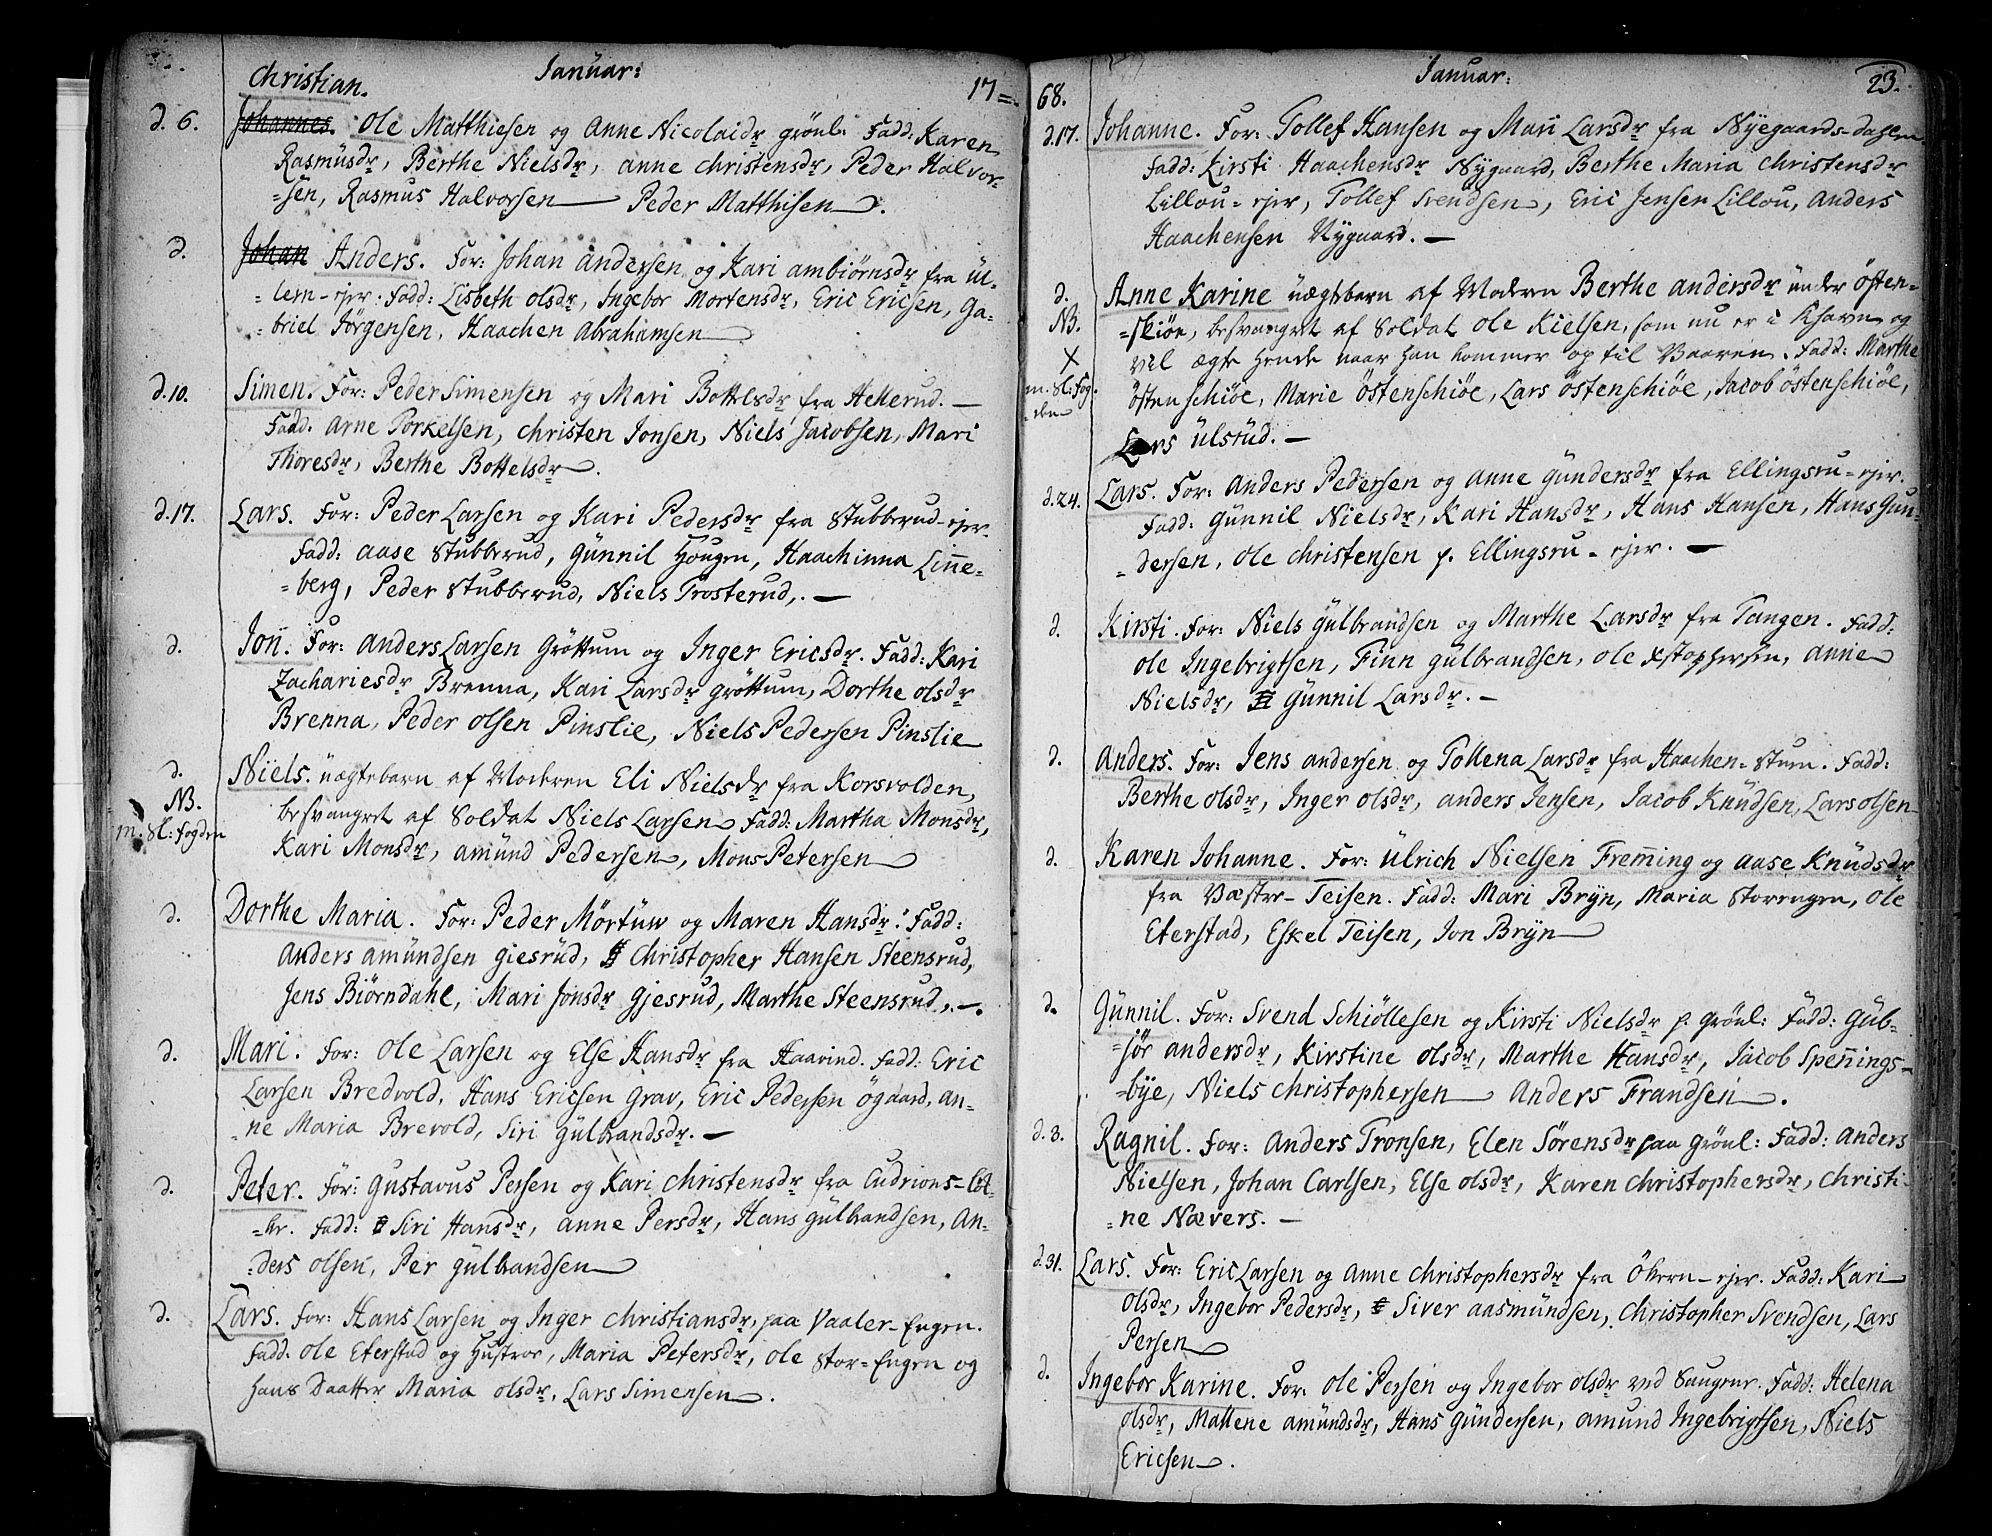 Januar:
17=
Christian.
d. 6. Johannes. Ole Matthiesen og Anne Nicolaidr grönl: Fadd: Karen
Rasmusdr, Berthe Nielsdr, Anne Christensdr, Peder Halvor-
=sen, Rasmus Halvorsen Peder Matthisen.
d. Johan Anders. For: Johan Andersen og Kari Ambiörnsdr fra Ul-
=lern-ejer. Fadd: Lisbeth Olsdr, Ingebor Mortensdr, Eric Ericsen, Ga-
=briel Jörgensen, Haachen Abrahamsen
d.10. Simen. For: Peder Simensen og Mari Bottelsdr fra Hellerud.—
Fadd. Arne Torkelsen, Christen Jonsen, Niels Jacobsen, Mari
Thoresdr, Berthe Bottelsdr.
d.17. Lars. For: Peder Larsen og Kari Pedersdr fra Stubberud-ejer.
Fadd: Aase Stubberud, Günnil Hougen, Haachinna Linne-
=berg, Peder Stubberud, Niels Trosterud,.—
d. Jon. For: Anders Larsen Gröttum og Inger Ericsdr. Fadd: Kari
Zachariesdr Brenna, Kari Larsdr gröttum, Dorthe Olsdr
Brenna, Peder Olsen Pinslie, Niels Pedersen Pinslie
d. Niels. uægtebarn af Moderen Eli Nielsdr fra Korsvolden,
NB. besvangret af Soldat Niels Larsen Fadd: Martha Monsdr,
m. Sl: fogden Kari Monsdr, Amünd Pedersen, Mons Petersen
d. Dorthe Maria. For: Peder Mörtuw og Maren Hansdr: Fadd:
Anders Amündsen Giesrüd, Christopher Hansen Steensrud,
Jens Biörndahl, Mari Jonsdr Gjesrud, Marthe Steensrud,.—.
d. Mari. For: Ole Larsen og Else Hansdr fra Haavind. Fadd: Eric
Larsen Bredvold, Hans Ericsen Grav, Eric Pedersen Ögaard, An-
=ne Maria Brevold, Siri Gülbrandsdr.—
d. Peter. For: Gustavus Persen og Kari Christensdr fra Cudrions-löl-
=kr. Fadd: Siri Hansdr, Anne Persdr, Hans Gülbrandsen, An-
=ders Olsen, Per Gülbrandsen
d. Lars. For: Hans Larsen og Inger Christiansdr, paa Vaaler-Engen.
Fadd. Ole Eterstad og Hustroe, Maria Petersdr, Ole Stor-Engen og
hans Daatter Maria Olsdr, Lars Simensen.
Januar:
23.
68.
d.17. Johanne. For: Tollef Hansen og Mari Larsdr fra Nyegaards-dahlen
Fadd: Kirsti Haachensdr Nygaard, Berthe Maria Christensdr
Lillou-ejer, Tollef Svendsen, Eric Jensen Lillou, Anders
Haachensen Nygaard.—
d. Anne Karine uægtebarn af Moderen Berthe Andersdr under Östen-
NB. =skiöe, besvangret af Soldat Ole Kielsen, som nu er i Khavn og
X vil ægte hende naar han kommer op til Vaaren. Fadd: Marthe
m. Sl. Fog- Östenschiöe, Marie Östenschiöe, Lars Östenschiöe, Jacob Östenschiöe,
=den
Lars Ulsrüd.—
d.24. Lars. For: Anders Pedersen og Anne Gündersdr fra Ellingsru-ejer.
Fadd: Günnil Nielsdr, Kari Hansdr, Hans Hansen, Hans Gun-
=dersen, Ole Christensen p. Ellingsru-ejer.—
d. Kirsti. For: Niels Gülbrandsen og Marthe Larsdr fra Tangen. Fadd:
Ole Ingebrigtsen, Finn Gülbrandsen, Ole Xstophersen, Anne
Nielsdr, Günnil Larsdr.—
d. Anders. For: Jens Andersen og Tollena Larsdr fra Haachen-stum. Fadd:
Berthe Olsdr, Inger Olsdr, Anders Jensen, Jacob Knüdsen, Lars Olsen
d. Karen Johanne. For: Ulrich Nielsen Fremming og Aase Knüdsdr
fra Væster-Teisen. Fadd: Mari Bryn, Maria Storengen, Ole
Eterstad, Eskel Teisen, Jon Bryn
d. Günnil. For: Svend Schiöllesen og Kirsti Nielsdr p. grönl: Fadd: Gub-
=jör Andersdr, Kirstine Olsdr, Marthe Hansdr, Jacob Spennings-
=bye, Niels Christophersen Anders Frandsen.
d. 3. Ragnil. For: Anders Tronsen, Elen Sörensdr paa Grönl: Fadd: Anders
Nielsen, Johan Carlsen, Else Olsdr, Karen Christophersdr, Christi-
=ne Nævers.—
d.31. Lars. For: Eric Larsen og Anne Christophersdr fra Ökern-ejer. Fadd: Kari
Olsdr, Ingebor Pedersdr, Siver Aasmündsen, Christopher Svendsen, Lars
Persen
d. Ingebor Karine. For: Ole Persen og Ingebor Olsdr ved Saugene. Fadd: Helena
Olsdr, Mallene Amündsdr, Hans Gündersen, Amund Ingebrigtsen, Niels
Ericsen.